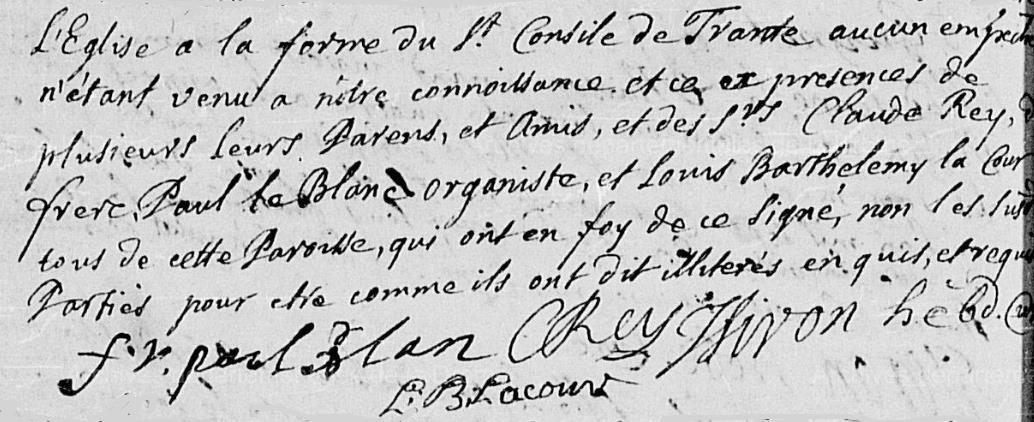 L'Eglise a la forme du St. Consile de Trante aucun empeche
n'étant venu a nôtre connoissance et ce ex presences de
plusieurs leurs Parens, et Amis, et des Srs Claude Rey,
frere, Paul le Blanc organiste, et Louis Barthelemy la Cour
tous de cette Paroisse, qui ont en foy de ce Signé, non les sus
Parties pour etre comme ils ont dit illiterés enquis, et requi
fr. paul Blan CRey Hivon hebd. Cu
L. B. Lacour